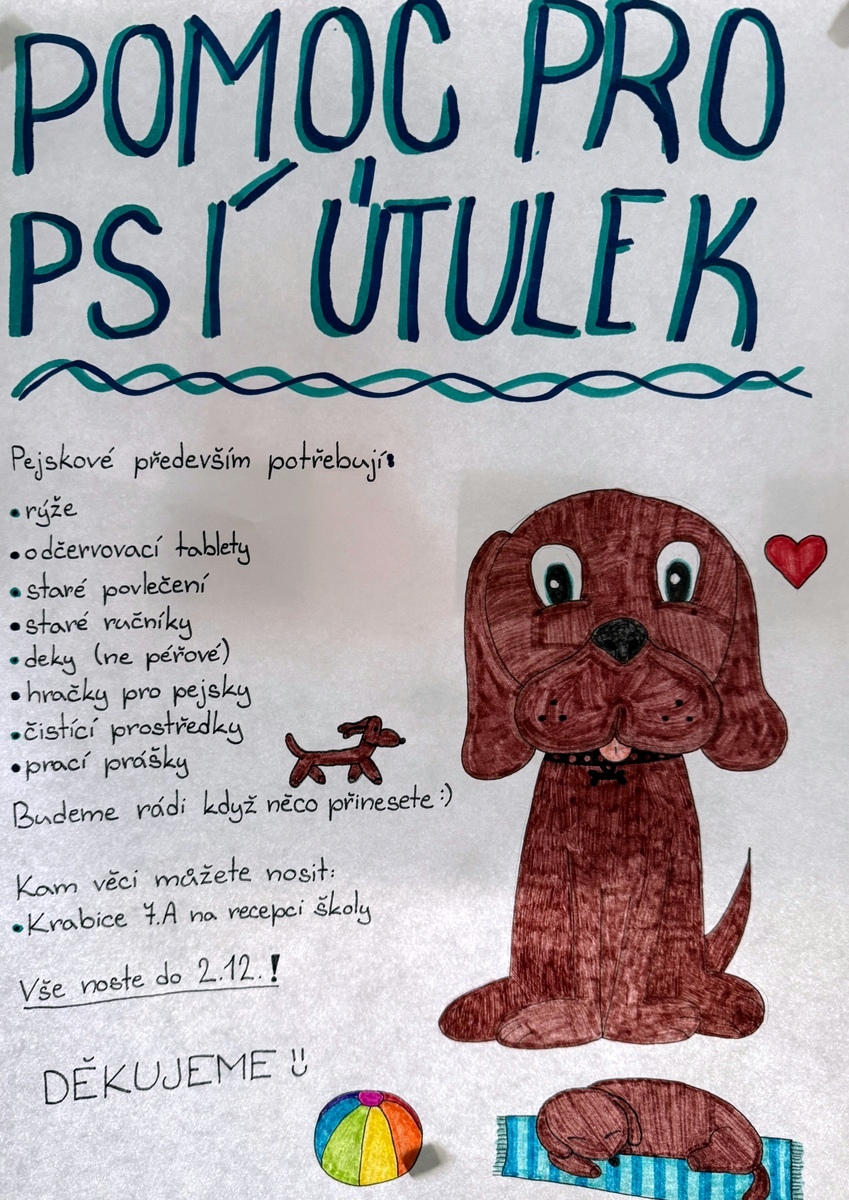 POMOC PRO
PSÍ ÚTULEK
Pejskové především potřebují:
• rýže
• odčervovací tablety
• staré povlečení
• staré ručníky
• deky (ne péřové)
• hračky pro pejsky
• čistící prostředky
• prací prášky
Budeme rádi když něco přinesete :)
Kam věci můžete nosit:
• Krabice 7.A na recepci školy
Vše noste do 2.12.!
DĚKUJEME :)